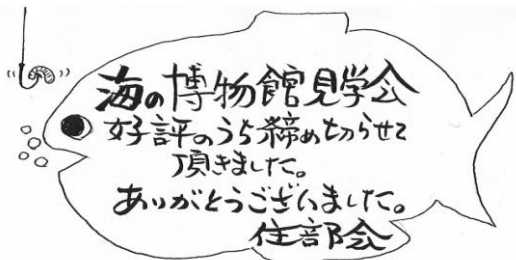 海の博物館見学会
好評のうち締め切らせて
頂きました。
ありがとうございました。
住部会